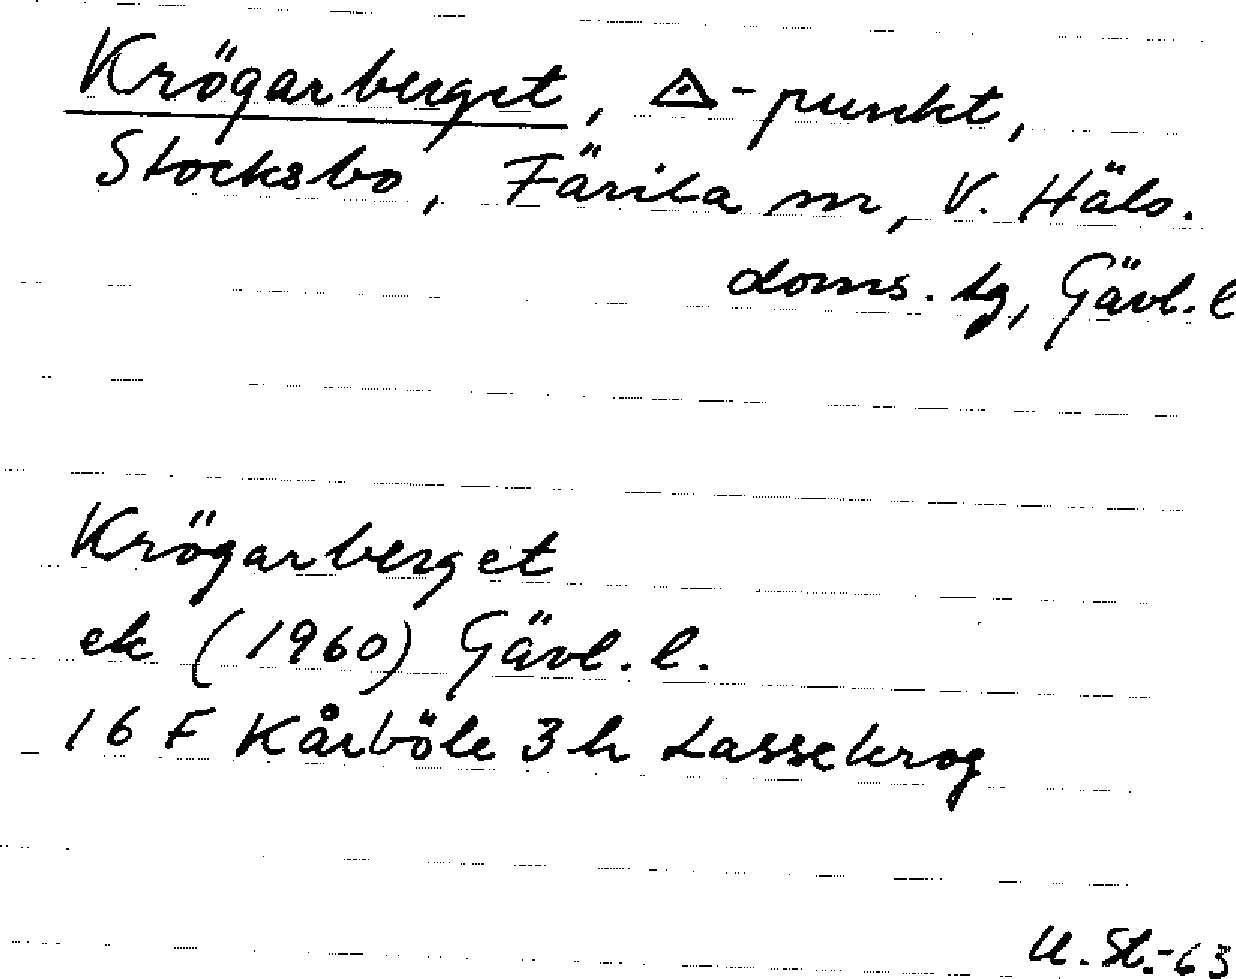 Krögarberget, △-punkt,
Stocksbo, Färila sn, V. Häls.
doms. tg, Gävl. l
Krögarberget
ek (1960) Gävl. l.
16 F Kårböle 3 h Lassekrog
U. St.-63